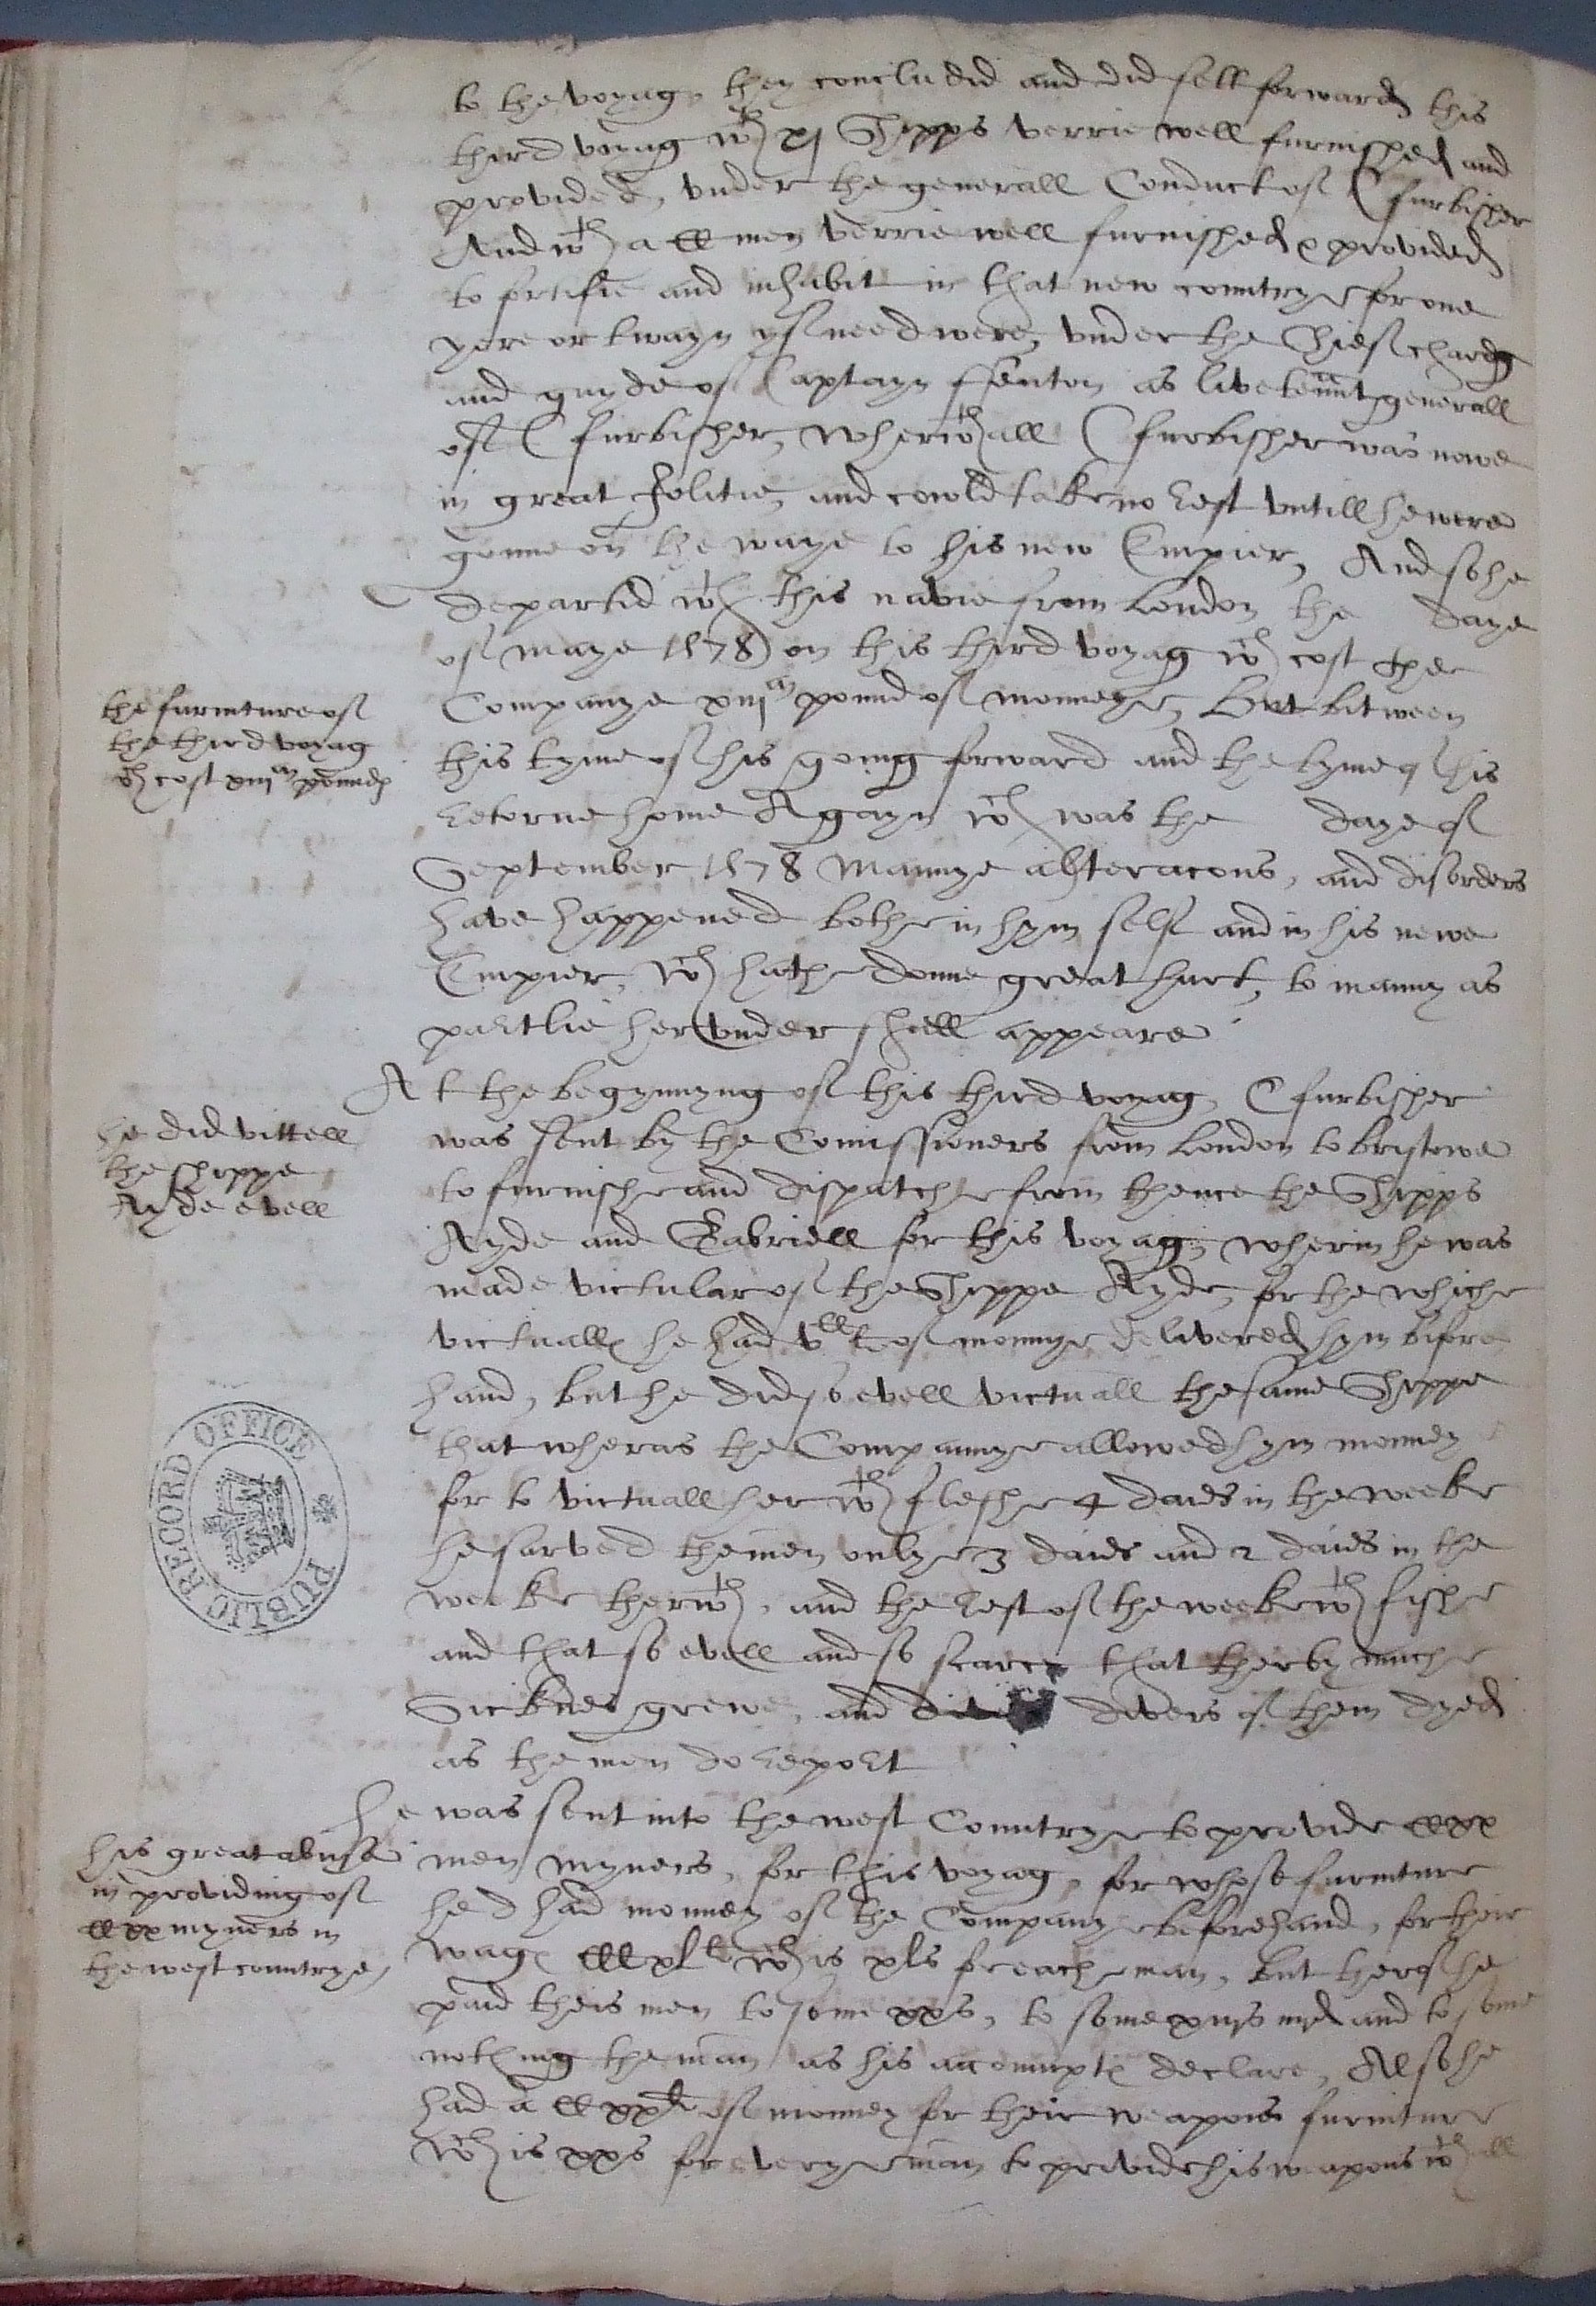 to the voyag, they concludid and did sett forward this
third voyag wth xj Shipps verrie well furnished and
provided, vnder the generall Conduct of C furbisher
And wth a C men verrie well furnished & provided
to fortifie and inhabit in that new countrye for one
yere or twayn yf need were, vnder the Chief chardg
and guyde of Captayn ffenton as livetennt generall
of C furbisher, wherwthall C furbisher was nowe
in great Jolitie, and cowld take no rest vntill he were
gonne on the waye to his new Empier, And so he
departid wth this navie from London the daye
of maye 1578 on this third voyag wch cost the
Companye viijm pound of monneye, But bitween
the furniture of
the third voyag
wch cost viijm pounds
this tyme of his going forward and the tyme of his
retorne home Agayn wch was the daye of
September 1578 Mannye alteracons, and disorders
have happened bothe in hym self and in his newe
Empier, wch hathe donne great hurt, to manny as
partlie hervnder shall appeare
At the begynnyng of this third voyag C furbisher
he did vittell
the shippe
Ayde evell
was sent by the Comissioners from London to bristowe
to furnishe and dispatche from thence the Shipps
Ayde and Gabriell for this voyag, wherin he was
made victular of the Shippe Ayde, for the whiche
victualls he had vC li of monnye delivered hym bifore
hand, but he did so evell victuall the same Shippe
that wheras the Companye allowed hym monney
for to victuall her wth fleshe 4 daies in the weeke
he sarved the men onlye 3 daies and 2 daies in the
weeke therwth, and the rest of the weeke wth fishe
and that so evell and so scarce that therby muche
Sicknes grewe, and divers of them dyed
as the men do report
PUBLIC RECORD OFFICE
He was sent into the west Countrye to provide Cxx
his great abuse
in providing of
Cxx myners in
the west countrye
men myners, for this voyag, for whose furniture
he had monney of the Companye beforehand, for their
wages CCxl li wch is xls for eache man, but therof he
paid theis men to some xxs, to some xiijs iiijd and to some
nothing the man as his accoumpts declare, Also he
had a Cxx li of monney for their weapons furniture
wch is xxs for everye man to provide his weapons wthall